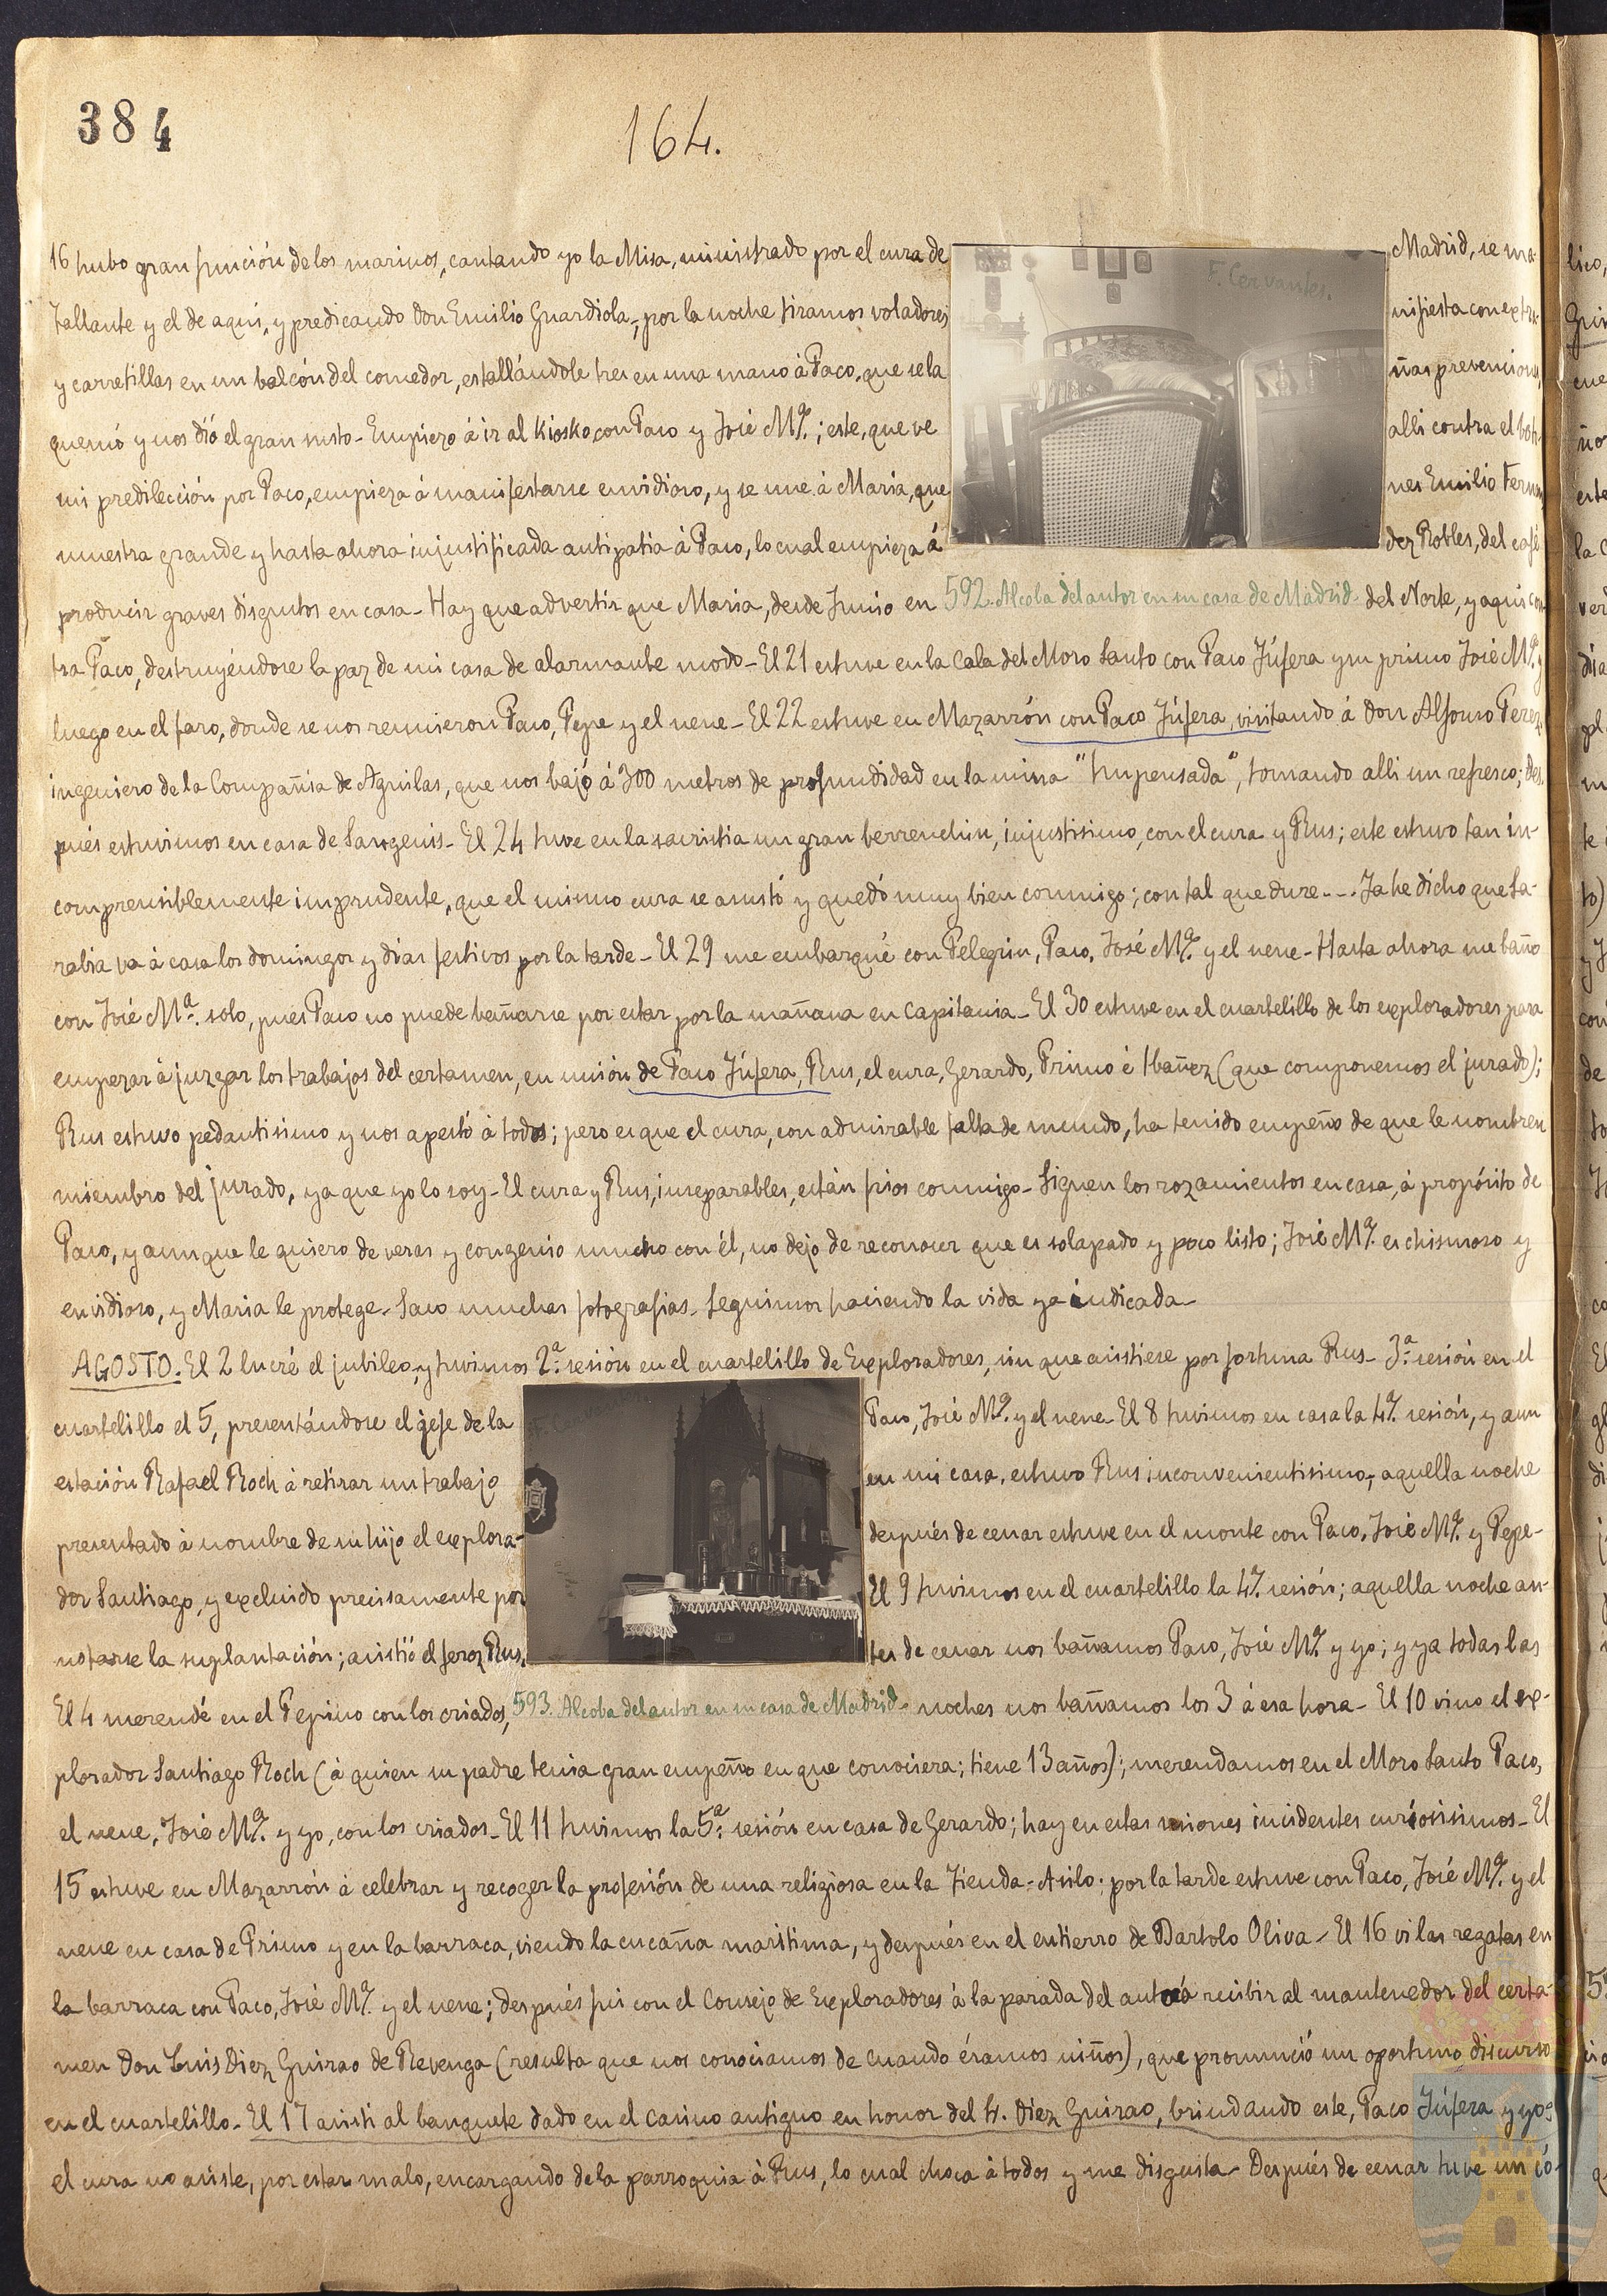 384
164.
16 hubo gran función de los marinos, cantando yo la Misa, ministrado por el cura de
Tallante y el de aquí, y predicando Don Emilio Guardiola; por la noche tiramos voladores
y carretillas en un balcón del comedor, estallándole tres en una mano à Paco, que se la
quemó y nos dió el gran susto - Empiezo à ir al Kiosko con Paco y José Mª.; este, que ve
mi predilección por Paco, empieza á manifestarse envidioso, y se une à Maria, que
muestra grande y hasta ahora injustificada antipatia à Paco, lo cual empieza á
producir graves disgustos en casa - Hay que advertir que Maria, desde Junio en
F. Cervantes.
592. Alcoba del autor en su casa de Madrid -
Madrid, se ma-
nifiesta con extra-
ñas prevenciones,
alli contra el boti-
nes Emilio Fernan-
dez Robles, del café
del Norte, y aqui con-
tra Paco, destruyéndose la paz de mi casa de alarmante modo - El 21 estuve en la Cala del Moro Santo con Paco Júfera y su primo José Mª. y
luego en el faro, donde se nos reunieron Paco, Pepe y el nene - El 22 estuve en Mazarrón con Paco Júfera, visitando à Don Alfonso Perez,
ingeniero de la Compañia de Aguilas, que nos bajó à 300 metros de profundidad en la mina "Impensada", tomando alli un refresco; des-
pués estuvimos en casa de Sanzenis - El 24 tuve en la sacristia un gran berrenchin, injustisimo, con el cura y Rus; este estuvo tan in-
comprensiblemente imprudente, que el mismo cura se asustó y quedó muy bien conmigo; con tal que dure - - - Ya he dicho que Sa-
rabia va à casa los domingos y dias festivos por la tarde - El 29 me embarqué con Pelegrin, Paco, José Mª. y el nene - Hasta ahora me baño
con José Mª. solo, pues Paco no puede bañarse por estar por la mañana en Capitania - El 30 estuve en el cuartelillo de los exploradores para
empezar à juzgar los trabajos del certamen, en unión de Paco Júfera, Rus, el cura, Gerardo, Primo é Ibañez (que componemos el jurado);
Rus estuvo pedantisimo y nos apestó à todos; pero es que el cura, con admirable falta de mundo, ha tenido empeño de que le nombren
miembro del jurado, ya que yo lo soy - El cura y Rus, inseparables, están frios conmigo - Siguen los rozamientos en casa, à propósito de
Paco, y aunque le quiero de veras y congenio mucho con él, no dejo de reconocer que es solapado y poco listo; José Mª. es chismoso y
envidioso, y Maria le protege - Saco muchas fotografias - Seguimos haciendo la vida ya indicada -
AGOSTO. El 2 lucré el jubileo, y tuvimos 2ª. sesión en el cuartelillo de Exploradores, sin que asistiese por fortuna Rus - 3ª. sesión en el
cuartelillo el 5, presentándose el gefe de la
estación Rafael Roch à retirar un trabajo
presentado à nombre de su hijo el explora-
dor Santiago, y excluido precisamente por
notarse la suplantación; asistió el feroz Rus.
El 4 merendé en el Pepino con los criados,
593. Alcoba del autor en su casa de Madrid -
Paco, José Mª. y el nene - El 8 tuvimos en casa la 4ª. sesión, y aun
en mi casa, estuvo Rus inconvenientisimo; aquella noche
después de cenar estuve en el monte con Paco, José Mª. y Pepe -
El 9 tuvimos en el cuartelillo la 4ª. sesión; aquella noche an-
tes de cenar nos bañamos Paco, José Mª. y yo; y ya todas las
noches nos bañamos los 3 à esa hora - El 10 vino el ex-
plorador Santiago Roch (à quien su padre tenia gran empeño en que conociera; tiene 13 años); merendamos en el Moro Santo Paco,
el nene, José Mª. y yo, con los criados - El 11 tuvimos la 5ª. sesión en casa de Gerardo; hay en estas uniones incidentes curiosisimos - El
15 estuve en Mazarrón à celebrar y recoger la profesión de una religiosa en la Tienda-Asilo; por la tarde estuve con Paco, José Mª. y el
nene en casa de Primo y en la barraca, viendo la cucaña maritima, y después en el entierro de Bartolo Oliva - El 16 vi las regatas en
la barraca con Paco, José Mª. y el nene; después fui con el Consejo de Exploradores à la parada del auto à recibir al mantenedor del certa-
men Don Luis Diez Guirao de Revenga (resulta que nos conociamos de cuando éramos niños), que pronunció un oportuno discurso
en el cuartelillo - El 17 asisti al banquete dado en el Casino antiguo en honor del Sr. Diez Guirao, brindando este, Paco Júfera y yo;
el cura no asiste, por estar malo, encargando de la parroquia à Rus, lo cual choca à todos y me disgusta - Después de cenar tuve un có-